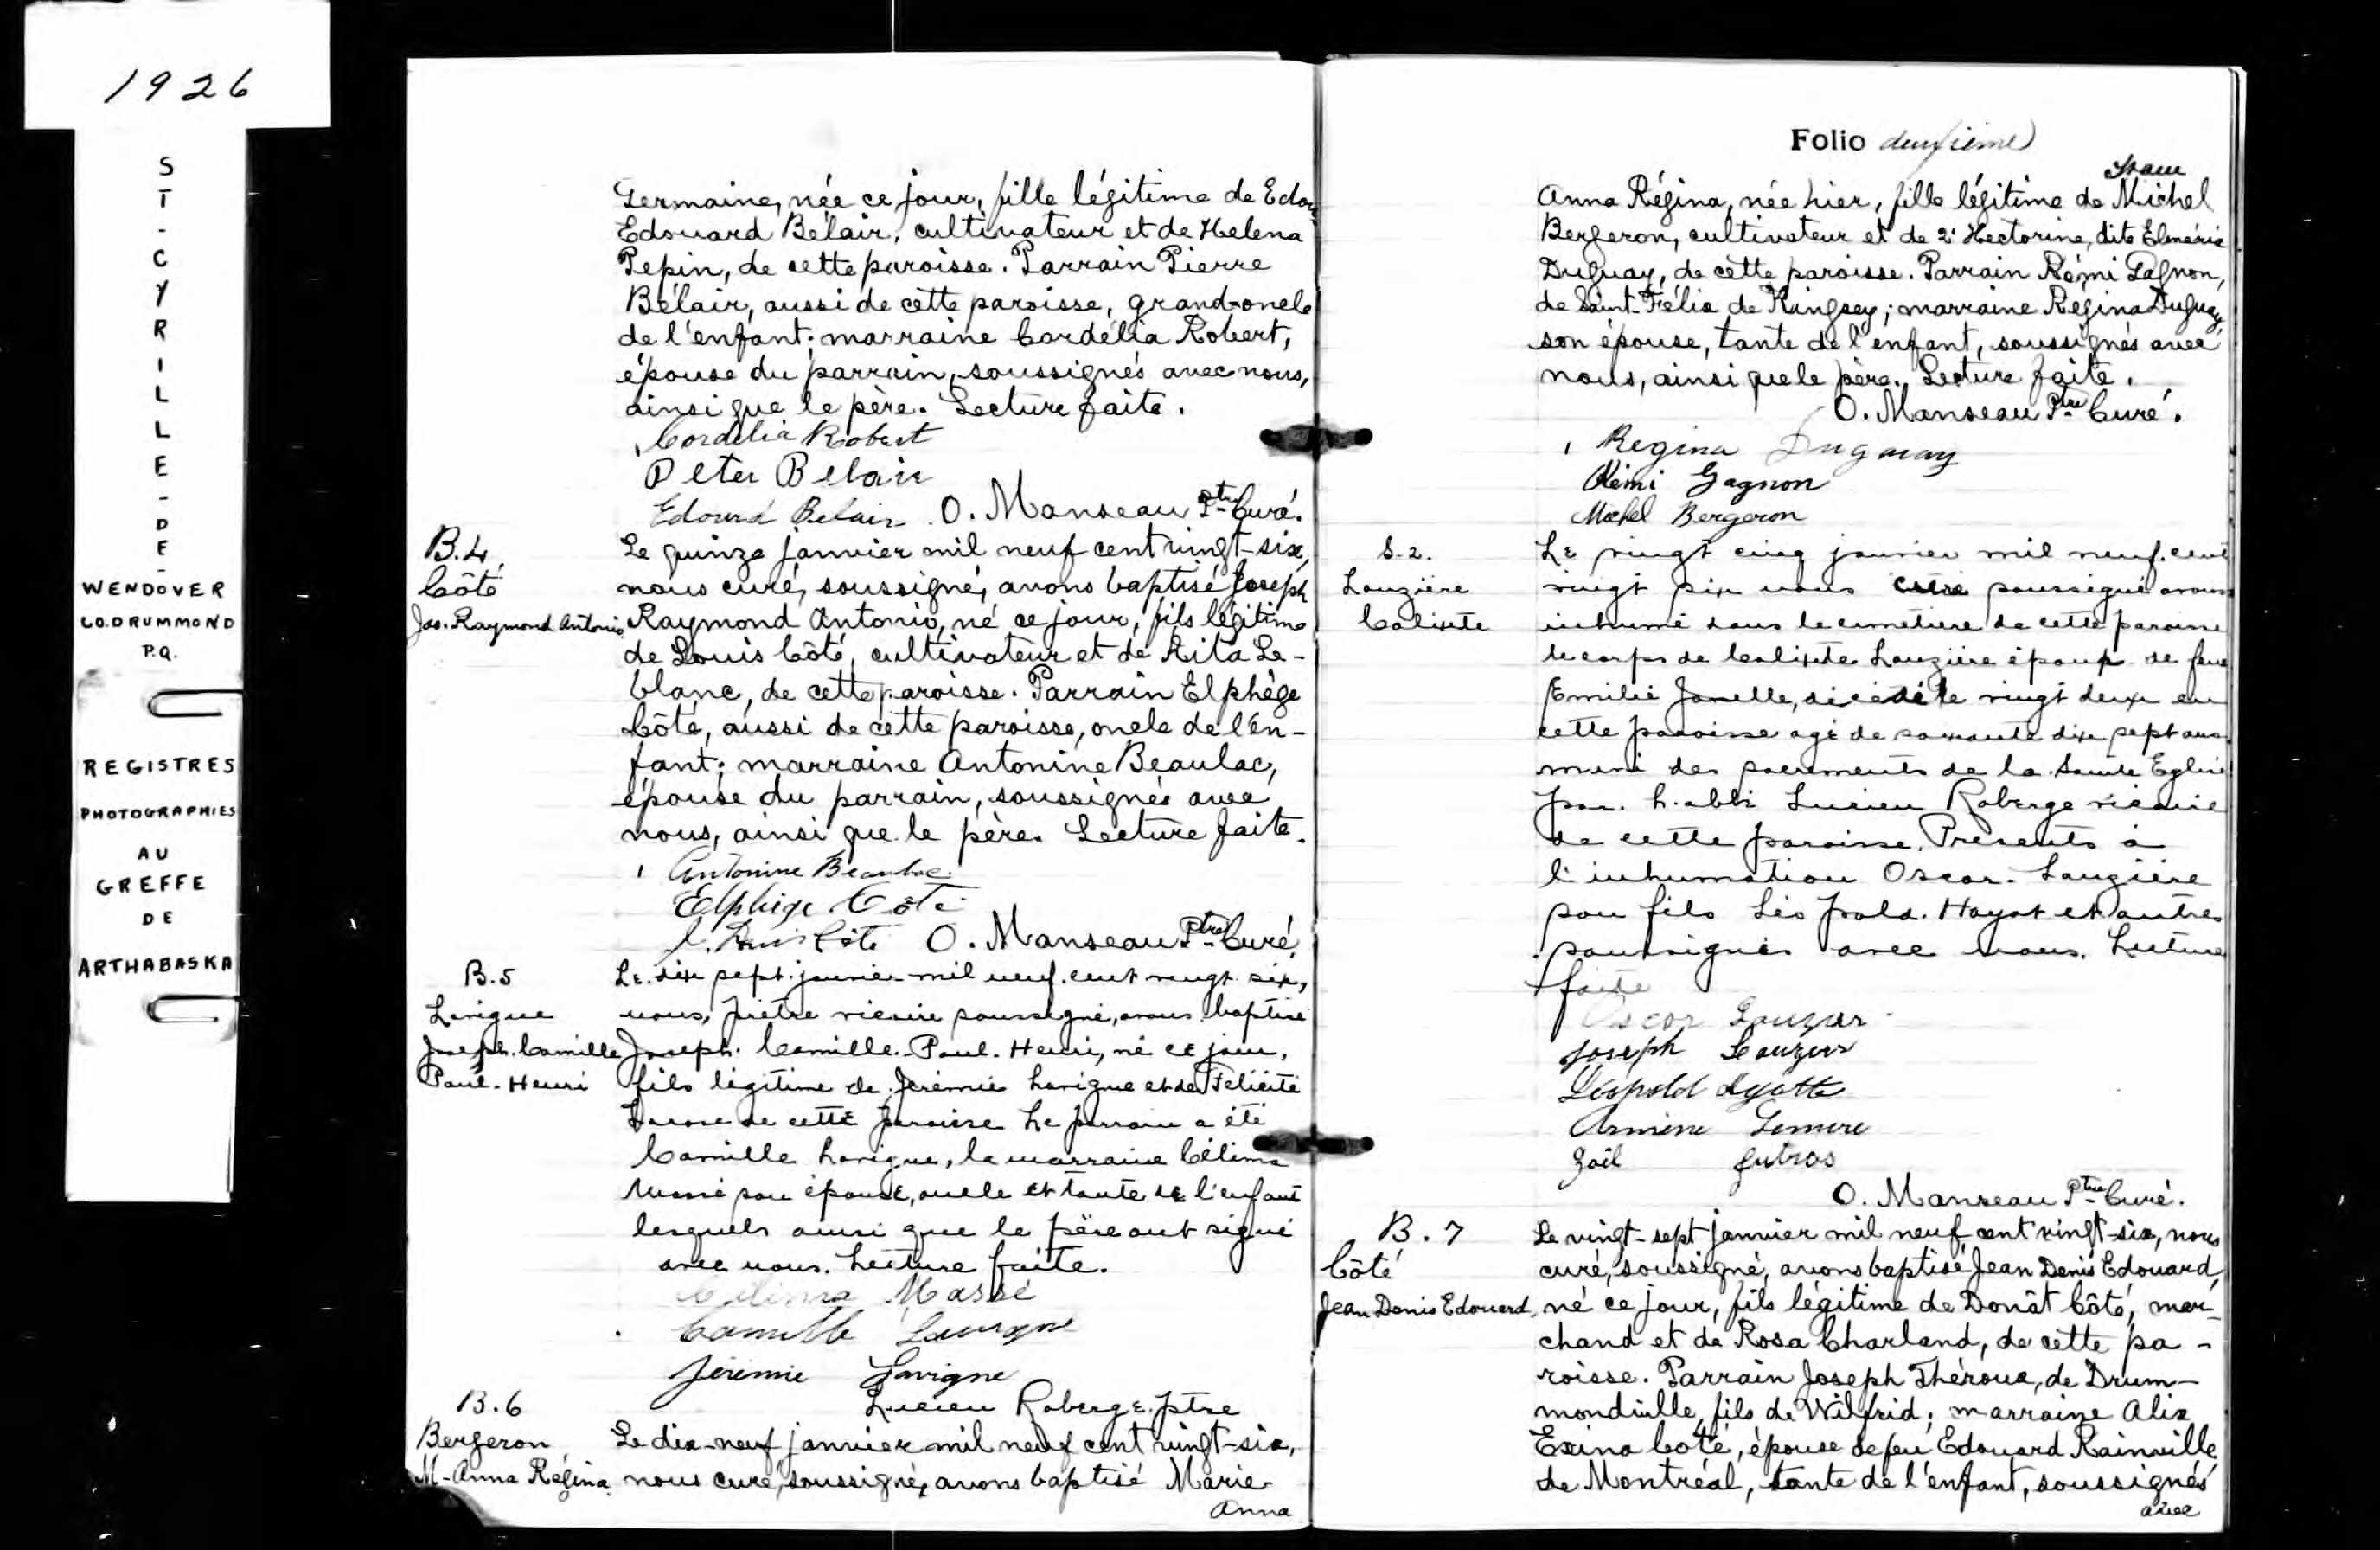 1926
ST-CYRILLE-DE-
WENDOVER
CO. DRUMMOND
P.Q.
REGISTRES
PHOTOGRAPHIES
AU
GREFFE
DE
ARTHABASKA
Germaine, née ce jour, fille légitime de Edou
Edouard Bélair, cultivateur et de Helena
Pepin, de cette paroisse. Parrain Pierre
Bélair, aussi de cette paroisse, grand-oncle
de l'enfant; marraine Cordélia Robert,
épouse du parrain, soussignés avec nous,
ainsi que le père. Lecture faite.
Cordelia Robert
Peter Belair
Edouard Belair O. Manseau Ptre Curé.
B.4
Côté
Jos. Raymond Antonio
Le quinze janvier mil neuf cent vingt-six,
nous curé, soussigné, avons baptisé Joseph
Raymond Antonio, né ce jour, fils légitime
de Louis Côté, cultivateur et de Rita Le-
blanc, de cette paroisse. Parrain Elphège
Côté, aussi de cette paroisse, oncle de l'en-
fant; marraine Antonine Beaulac,
épouse du parrain, soussignés avec
nous, ainsi que le père. Lecture faite.
Antonine Beaulac
Elphège Côté
Louis Côté O. Manseau Ptre Curé.
B.5
Lavigne
Joseph. Camille
Paul-Henri
Le dix sept janvier mil neuf cent vingt six,
nous, prêtre vicaire soussigné, avons baptisé
Joseph. Camille. Paul. Henri, né ce jour,
fils légitime de Jérémie Lavigne et de Félicité
de cette paroisse Le parrain a été
Camille Lavigne, la marraine Célima
Massé son épouse, oncle et tante de l'enfant
lesquels ainsi que le père ont signé
avec nous. Lecture faite.
Célima Massé
Camille Lavigne
Jérémie Lavigne
Lucien Roberge ptre
B.6
Bergeron
M-Anna Régina
Le dix-neuf janvier mil neuf cent vingt-six,
nous curé, soussigné, avons baptisé Marie
Anna
Folio deuxième
Anna Régina, née hier, fille légitime de Michel
Bergeron, cultivateur et de Hectorine, dite Elméria
Duguay, de cette paroisse. Parrain Rémi Gagnon,
de Saint-Félix de Kingsey; marraine Régina Duguay,
son épouse, tante de l'enfant, soussignés avec
nous, ainsi que le père. Lecture faite.
O. Manseau Ptre Curé.
Regina Duguay
Rémi Gagnon
Michel Bergeron
S-2.
Lauzière
Calixte
Le vingt cinq janvier mil neuf cent
vingt six nous curé soussigné avons
inhumé dans le cimetière de cette paroisse
le corps de Calixte Lauzière époux de feue
Emilie Janelle, décédé le vingt deux en
cette paroisse agé de soixante dix sept ans
muni des sacrements de la Sainte Eglise
par l'abbé Lucien Roberge vicaire
de cette paroisse. Présents à
l'inhumation Oscar Lauzière
son fils Léopold Hayot et autres
soussignés avec nous. Lecture
faite
Oscar Lauzier
Joseph Lauzier
Léopold Ayotte
Lemire
Joël Jutras
O. Manseau Ptre Curé.
B.7
Côté
Jean Denis Edouard
Le vingt-sept janvier mil neuf cent vingt-six, nous
curé, soussigné, avons baptisé Jean Denis Edouard,
né ce jour, fils légitime de Donât Côté, mar-
chand et de Rosa Charland, de cette pa-
roisse. Parrain Joseph Théroux, de Drum-
mondville, fils de Wilfrid; marraine Alix
Exina Coté, épouse de feu Edouard Rainville
de Montréal, tante de l'enfant, soussignés
avec